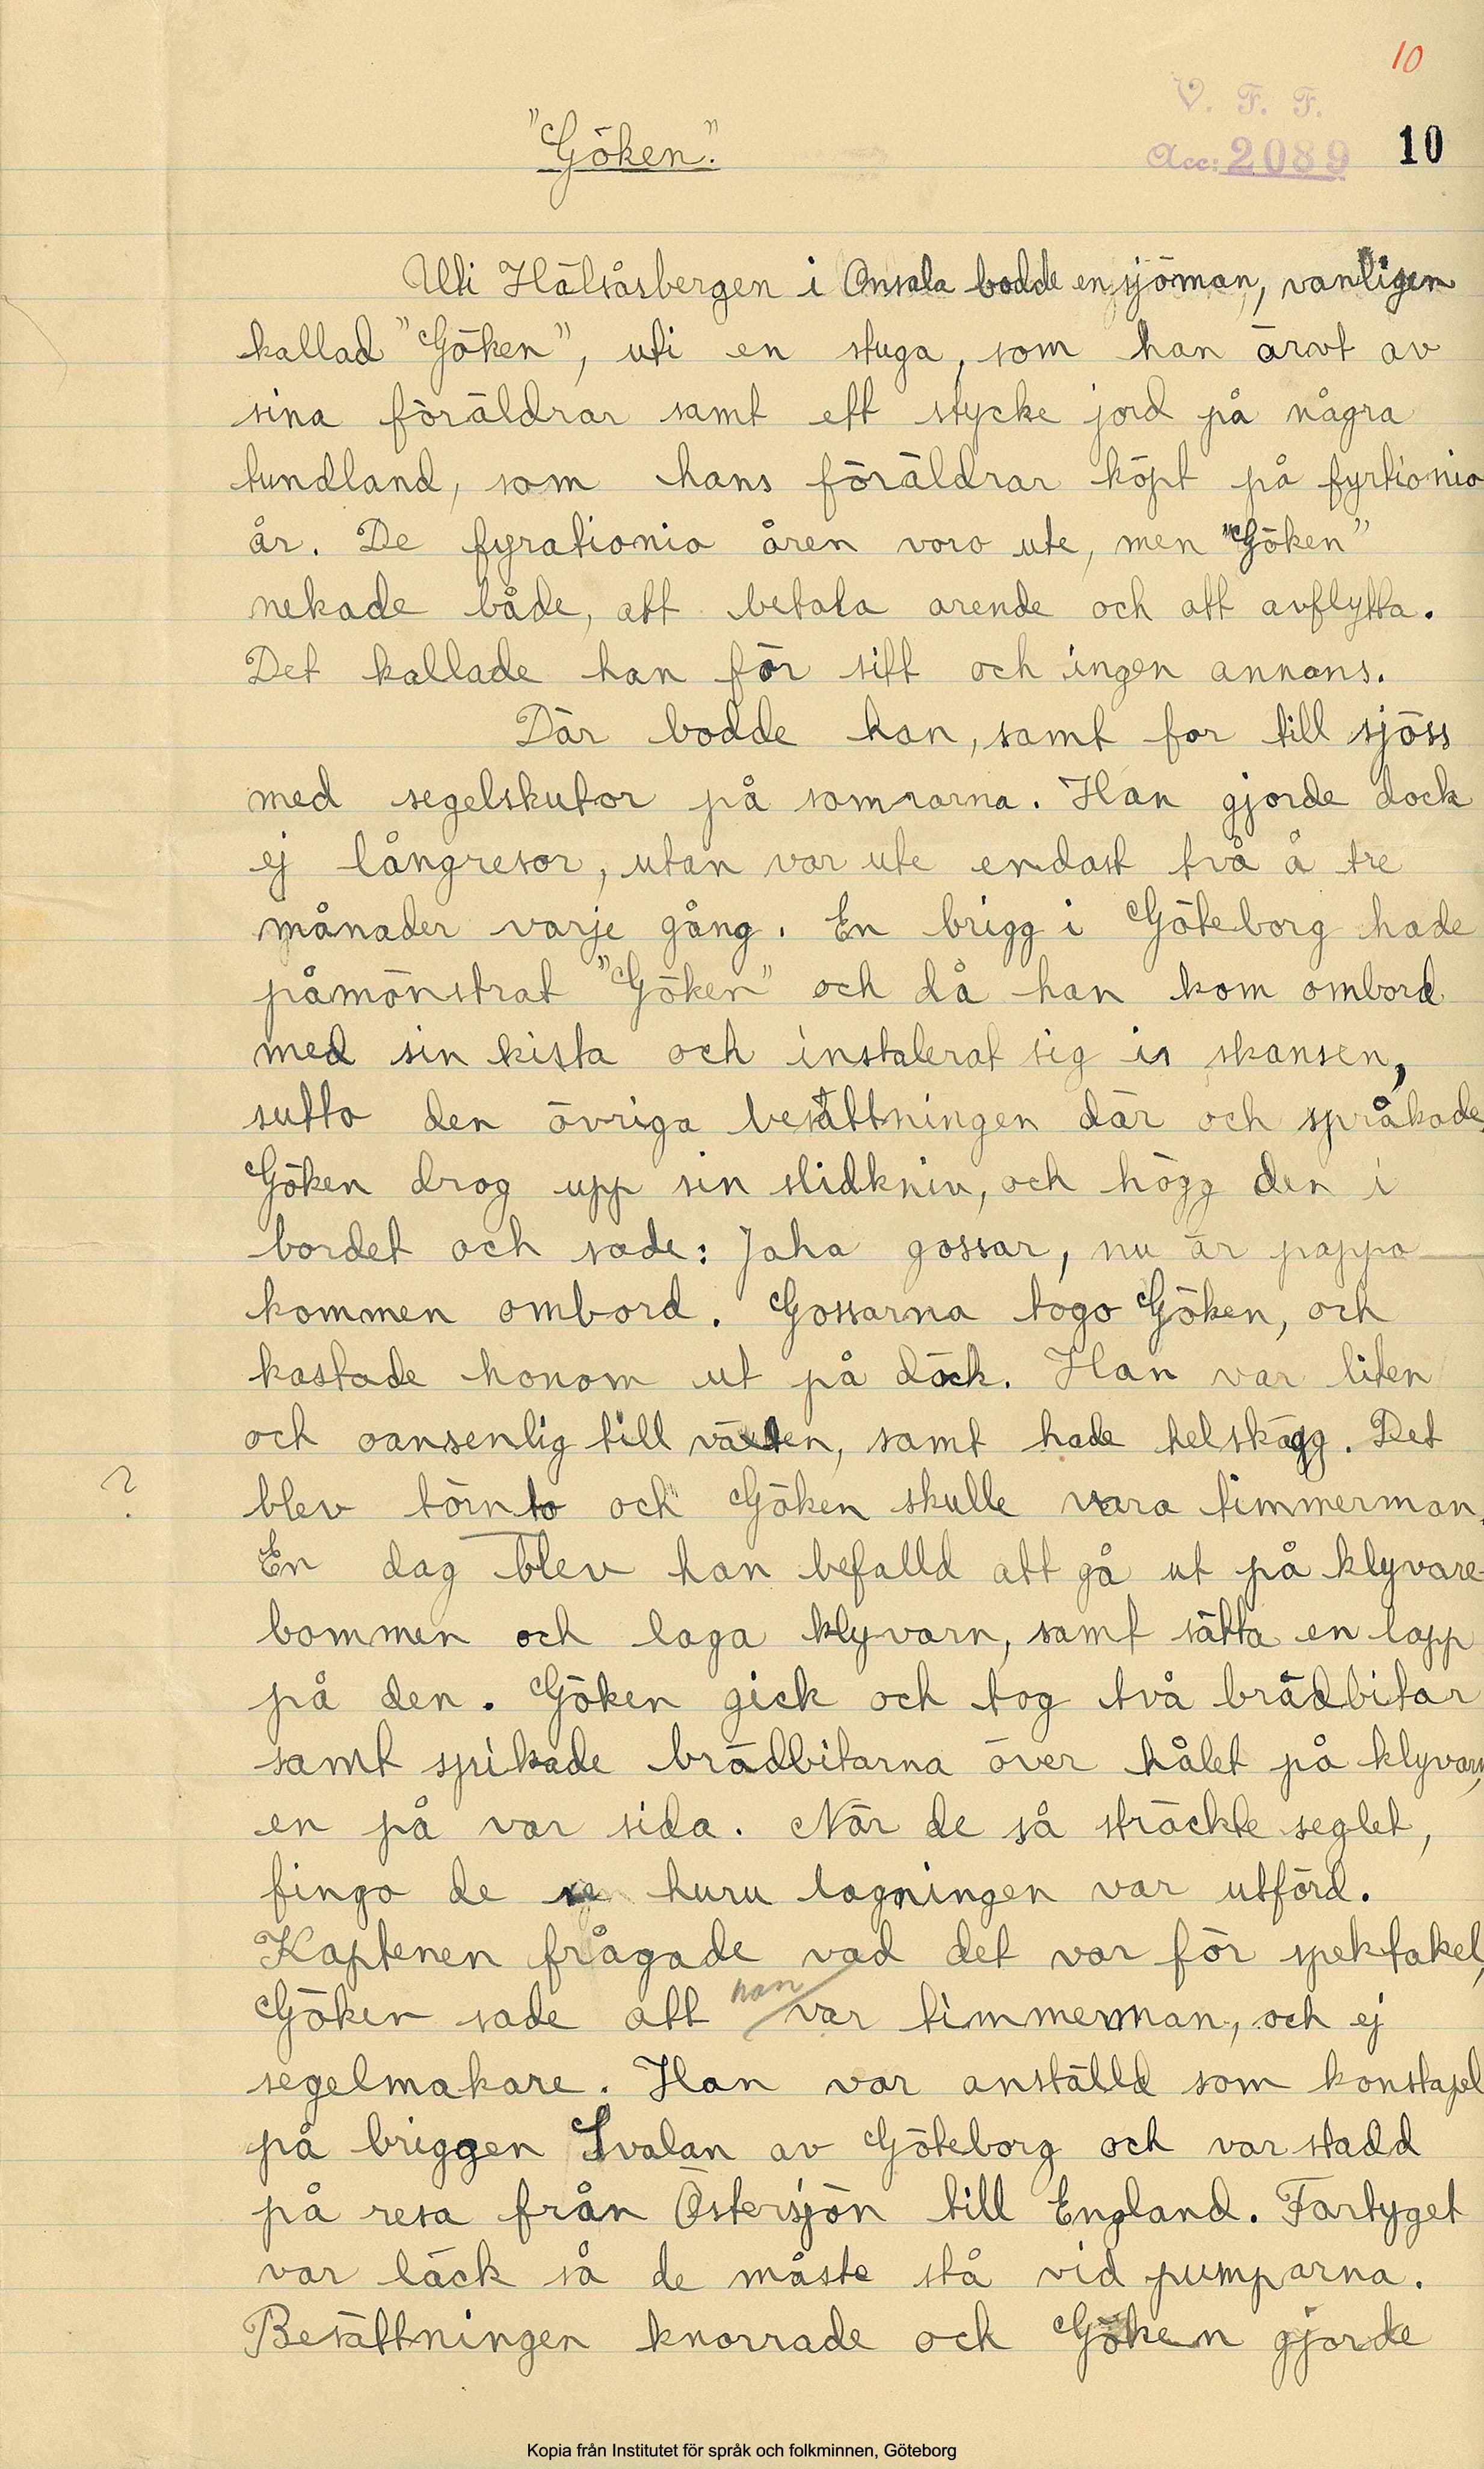 10
V. F. F.
Acc: 2089 10
"Göken".
Uti Hälsåsbergen i Onsala bodde en sjöman, vanligen
kallad "Göken", uti en stuga, som han ärvt av
sina föräldrar samt ett stycke jord på några
tundland, som hans föräldrar köpt på fyrtionio
år. De fyrationio åren voro ute, men "Göken"
nekade både, att betala arende och att avflytta.
Det kallade han för sitt och ingen annans.
Där bodde han, samt for till sjöss
med segelskutor på somrarna. Han gjorde dock
ej långresor, utan var ute endast två à tre
månader varje gång. En brigg i Göteborg hade
påmönstrat "Göken" och då han kom ombord
med sin kista och instalerat sig i skansen,
sutto den övriga besättningen där och språkade.
Göken drog upp sin slidkniv, och högg den i
bordet och sade: Jaha gossar, nu är pappa
kommen ombord. Gossarna togo Göken, och
kastade honom ut på däck. Han var liten
och oansenlig till växten, samt hade helskägg. Det
? blev törnto och Göken skulle vara timmerman.
En dag blev han befalld att gå ut på klyvare-
bommen och laga klyvarn, samt sätta en lapp
på den. Göken gick och tog två brädbitar
samt spikade brädbitarna över hålet på klyvarn,
en på var sida. När de så sträckte seglet,
fingo de se huru lagningen var utförd.
Kaptenen frågade vad det var för spektakel,
Göken sade att han var timmerman, och ej
segelmakare. Han var anställd som konstapel
på briggen Svalan av Göteborg och var stadd
på resa från Östersjön till England. Fartyget
var läck så de måste stå vid pumparna.
Besättningen knorrade och Göken gjorde
Kopia från Institutet för språk och folkminnen, Göteborg